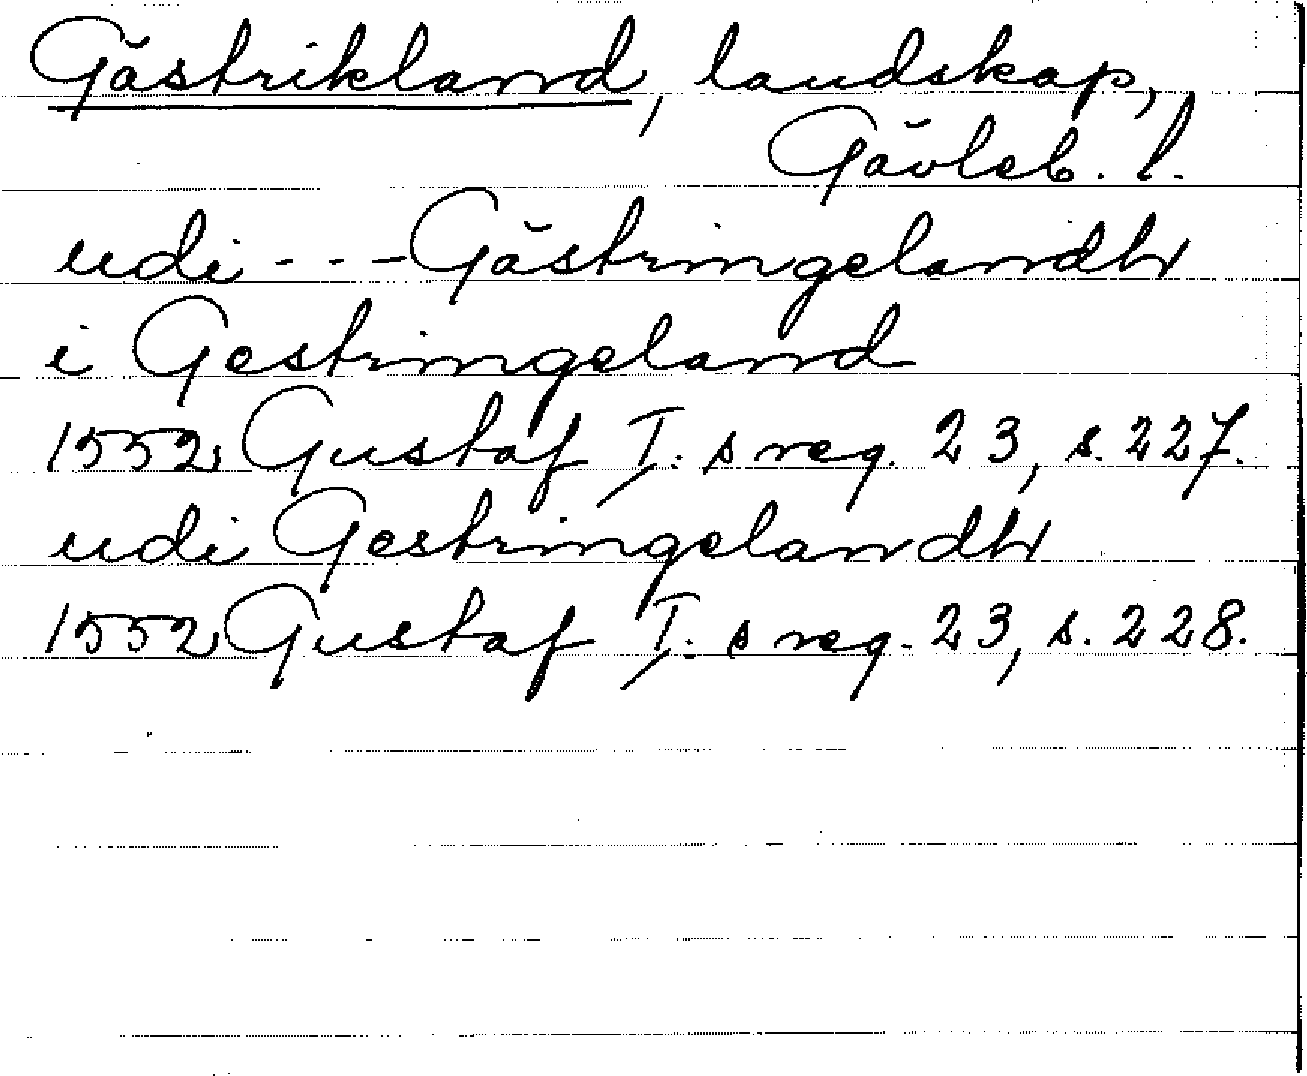 Gästrikland, landskap,
Gävleb. l.
udi - - - Gästringelandh
i Gestringeland
1552 Gustaf I:s reg. 23, s. 227.
udi Gestringelandh
1552 Gustaf I:s reg. 23, s. 228.